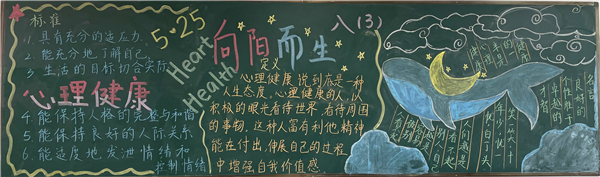 标准
1. 具有充分的适应力
2. 能充分地了解自己
3. 生活的目标切合实际
心理健康
4. 能保持人格的完整与和谐
5. 能保持良好的人际关系
6. 能适度地发泄情绪和
控制情绪
5·25
Heart
Health
向阳而生
八(3)
定义
心理健康,说到底是一种
人生态度,心理健康的人,以
积极的眼光看待世界,看待周围
的事物,这种人富有利他精神
能在付出,伸展自己的过程
中增强自我价值感
名言
良好的
个性胜于
卓越的
才智
笑一笑十年少
愁一愁白了头